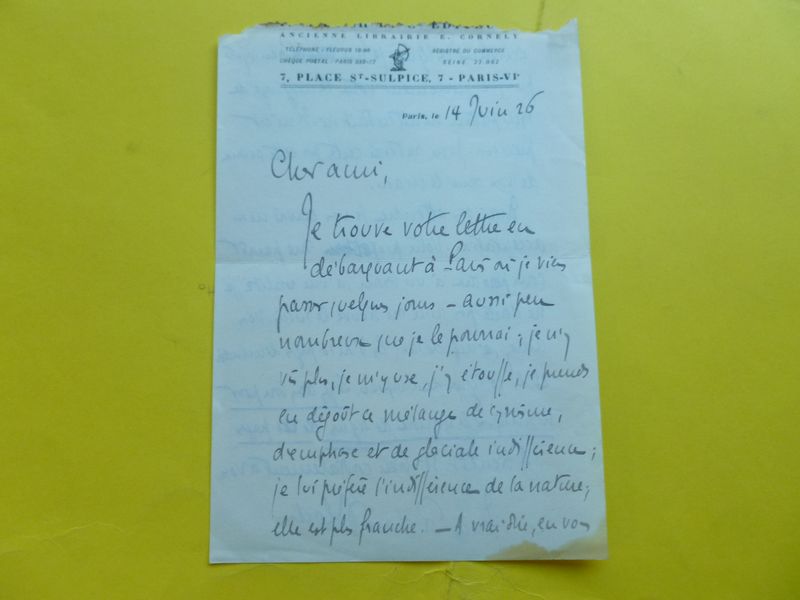 ANCIENNE LIBRAIRIE E. CORNELY
TÉLÉPHONE : FLEURUS
REGISTRE DU COMMERCE
CHÈQUE POSTAL : PARIS
SEINE
7, PLACE ST-SULPICE, 7 - PARIS-VIe
Paris, le 14 Juin 26
Cher ami,
Je trouve votre lettre en
débarquant à Paris où je viens
passer quelques jours – aussi peu
nombreux que je le pourrai ; je n'y
vis plus, je m'y use, j'y étouffe, je prends
en dégoût ce mélange de cynisme,
d'emphase et de glaciale indifférence ;
je lui préfère l'indifférence de la nature ;
elle est plus franche. – A vrai dire, en vous